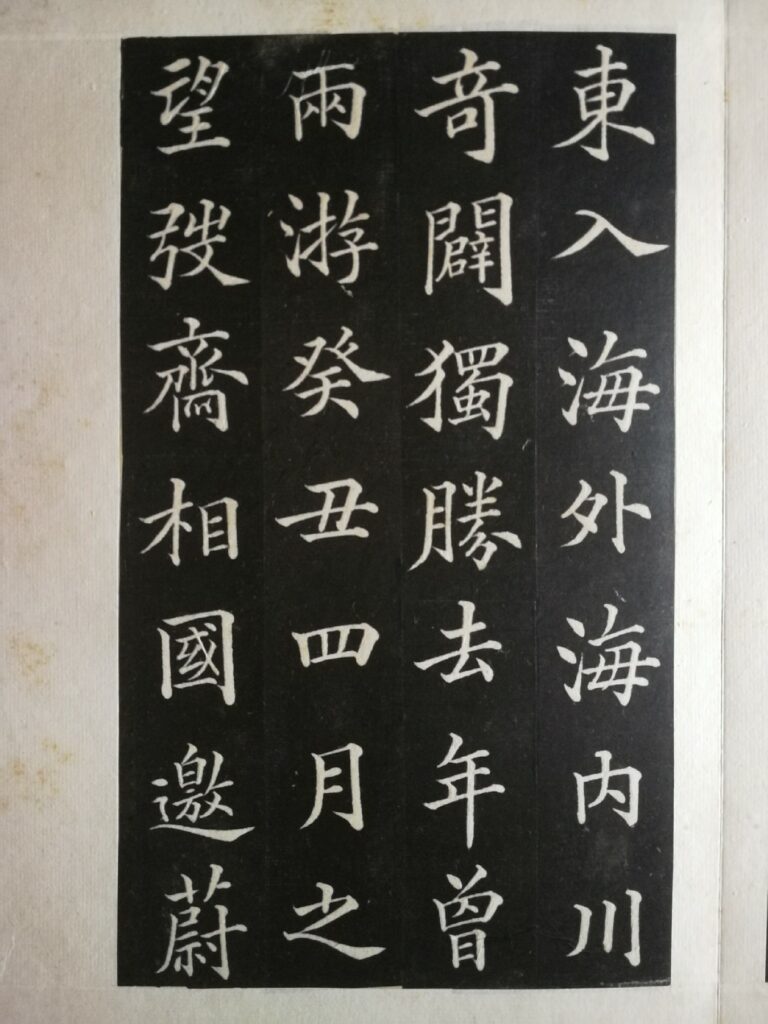 東入海外海内川
竒闢獨勝去年曾
兩游癸丑四月之
望弢齋相國邀蔚